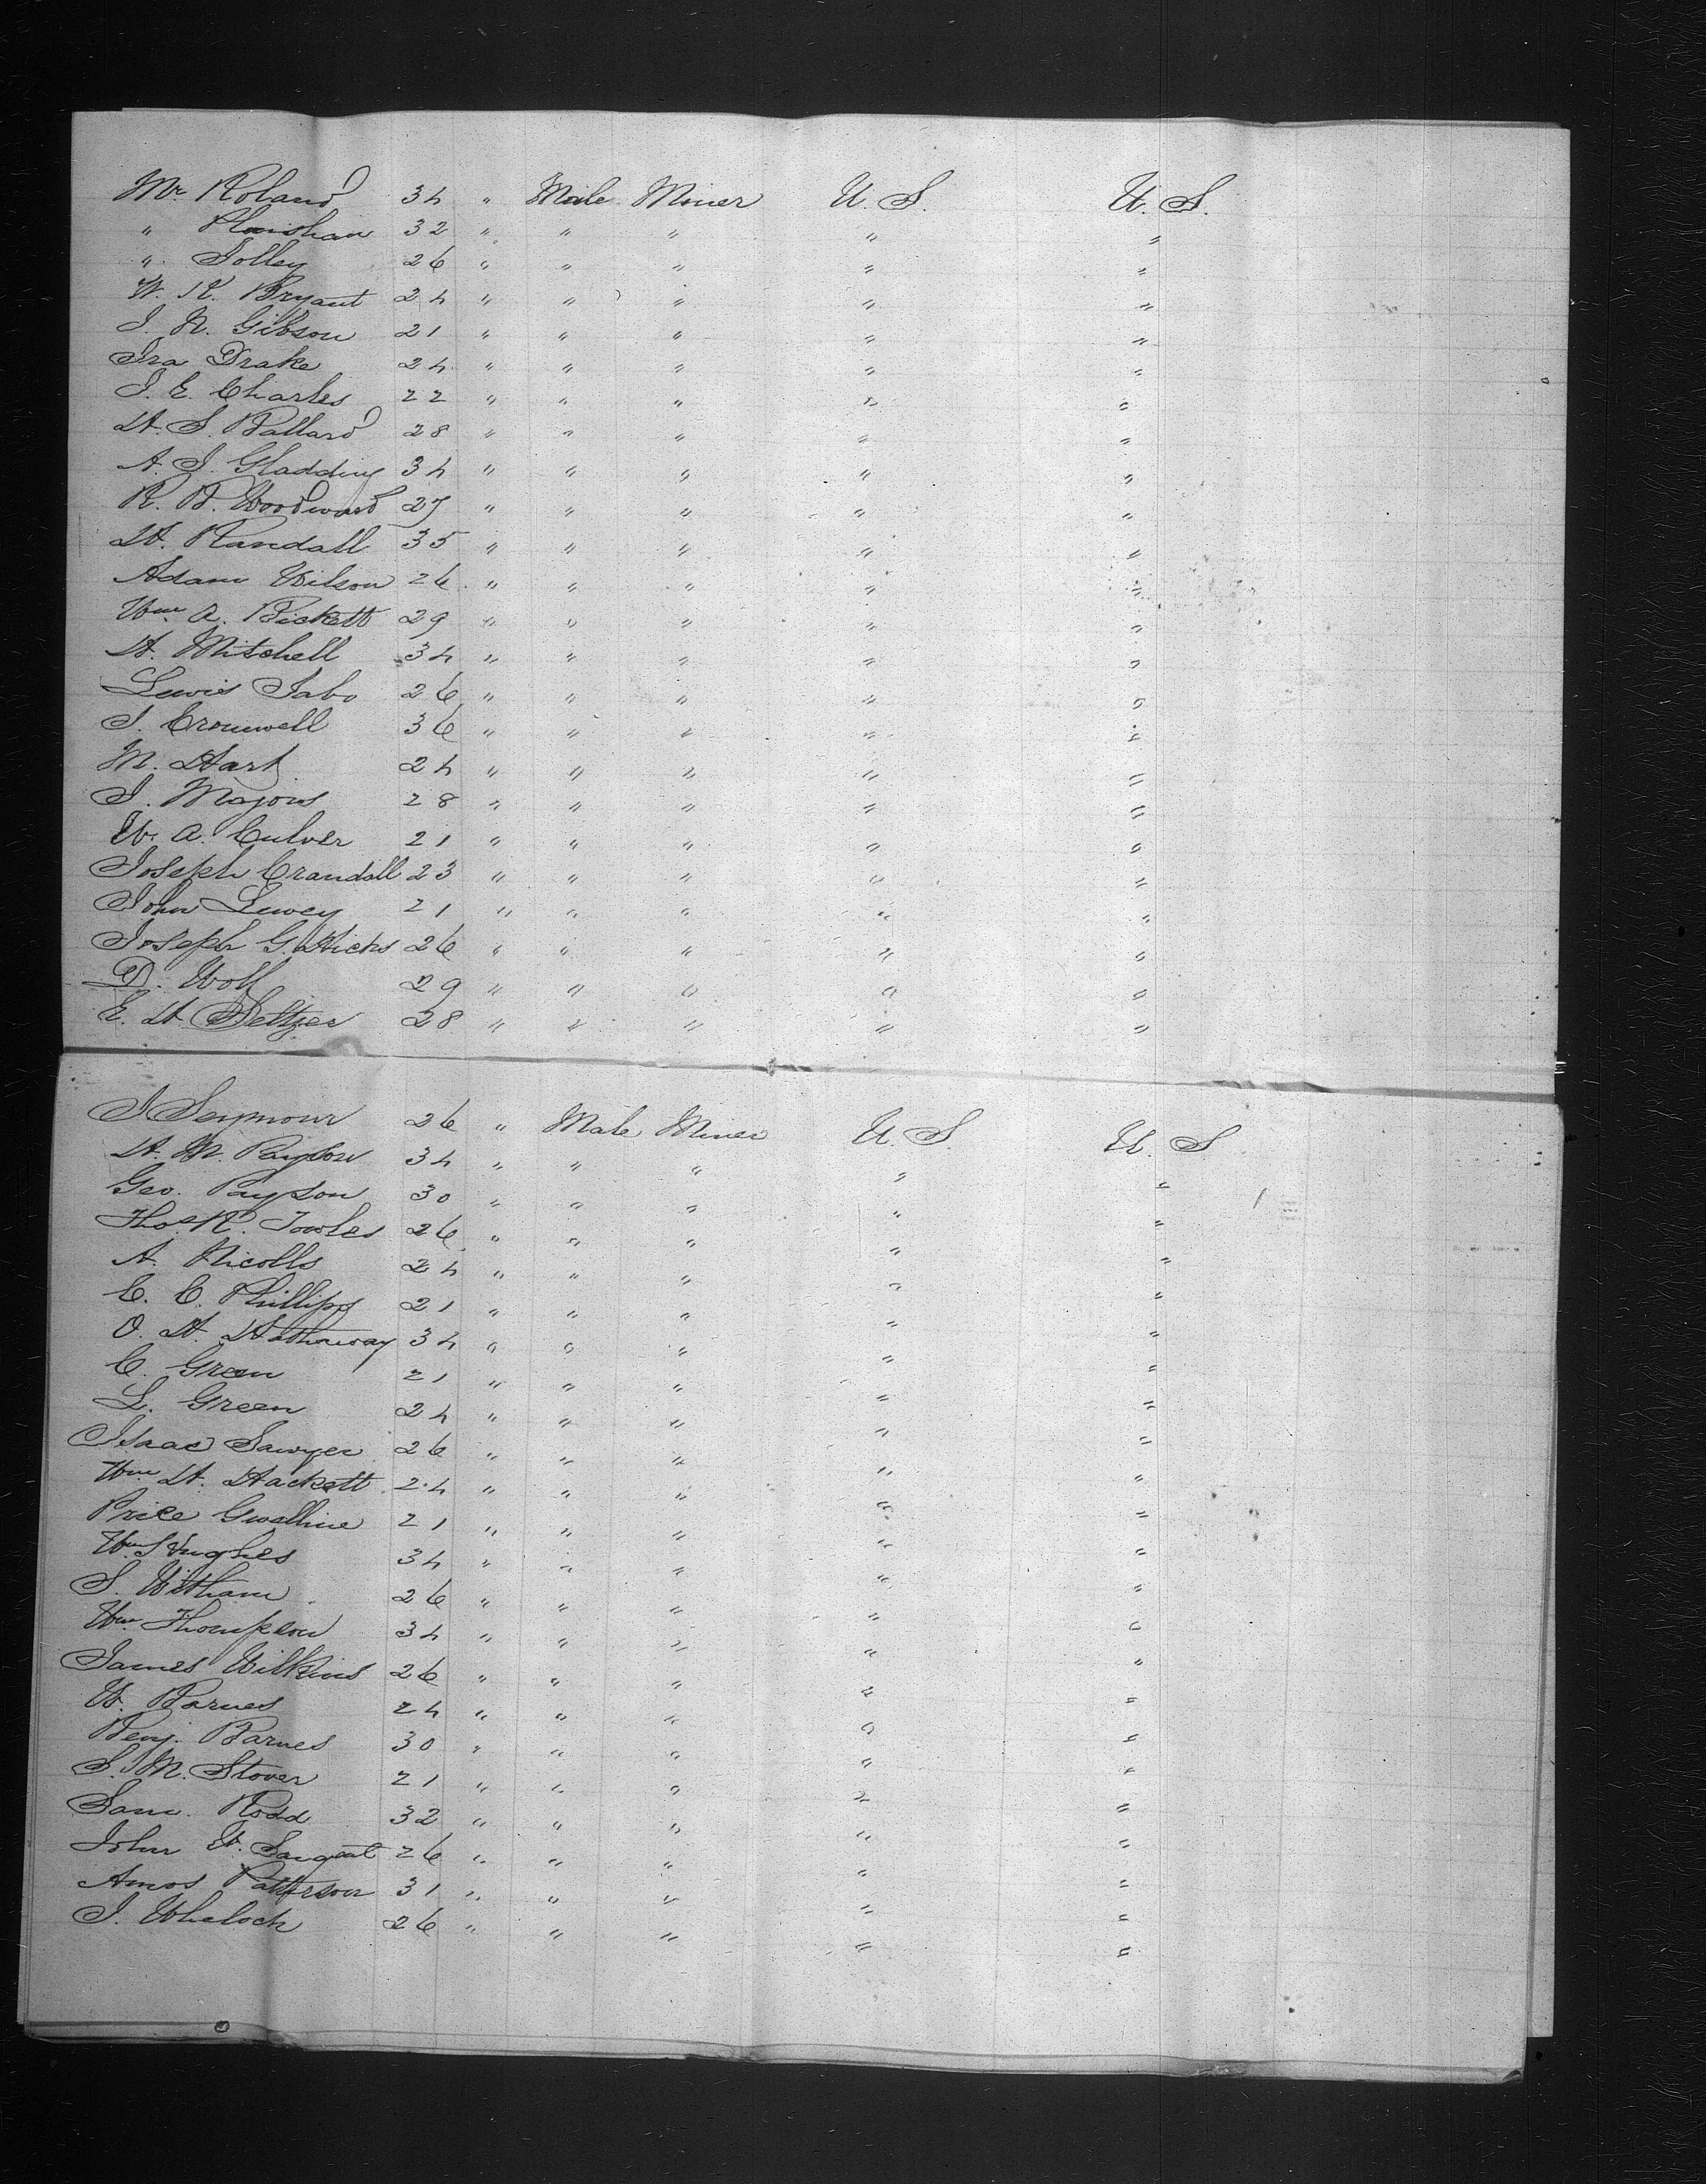 Mr Roland 34 " Male Miner U. S. U. S.
" 32 " " " " "
" Jolley 26 " " " " "
W. K. Bryant 24 " " " " "
J. N. Gibson 21 " " " " "
Ira Drake 24 " " " " "
J. E. Charles 22 " " " " "
H. S. Ballard 28 " " " " "
A. J. Gladding 34 " " " " "
R. B. Woodward 27 " " " " "
H. Randall 35 " " " " "
Adam Wilson 26 " " " " "
Wm. A. Bickett 29 " " " " "
H. Mitchell 34 " " " " "
Lewis Jabo 26 " " " " "
J. Cromwell 36 " " " " "
M. Hart 24 " " " " "
J. Majors 28 " " " " "
W. A. Culver 21 " " " " "
Joseph Crandall 23 " " " " "
John Lewey 21 " " " " "
Joseph G. Hicks 26 " " " " "
D. Wolf 29 " " " " "
E. H. Seltzer 28 " " " " "
J Seymour 26 " Male Miner U. S. U. S
H. M. Payson 34 " " " " "
Geo. Payson 30 " " " " "
Thos. R. Towles 26 " " " " "
A. Nicolls 24 " " " " "
C. C. Phillips 21 " " " " "
O. H. Hathaway 34 " " " " "
C. Green 21 " " " " "
L. Green 24 " " " " "
Isaac Sawyer 26 " " " " "
Wm H. Hackett 24 " " " " "
Price 21 " " " " "
Wm Hughes 34 " " " " "
S. Witham 26 " " " " "
Wm Thompson 34 " " " " "
James Wilkins 26 " " " " "
W. Barnes 24 " " " " "
Benj. Barnes 30 " " " " "
S. M. Stover 21 " " " " "
Sam. Rodd 32 " " " " "
John W. Sargent 26 " " " " "
Amos Patterson 31 " " " " "
J. Whelock 26 " " " " "